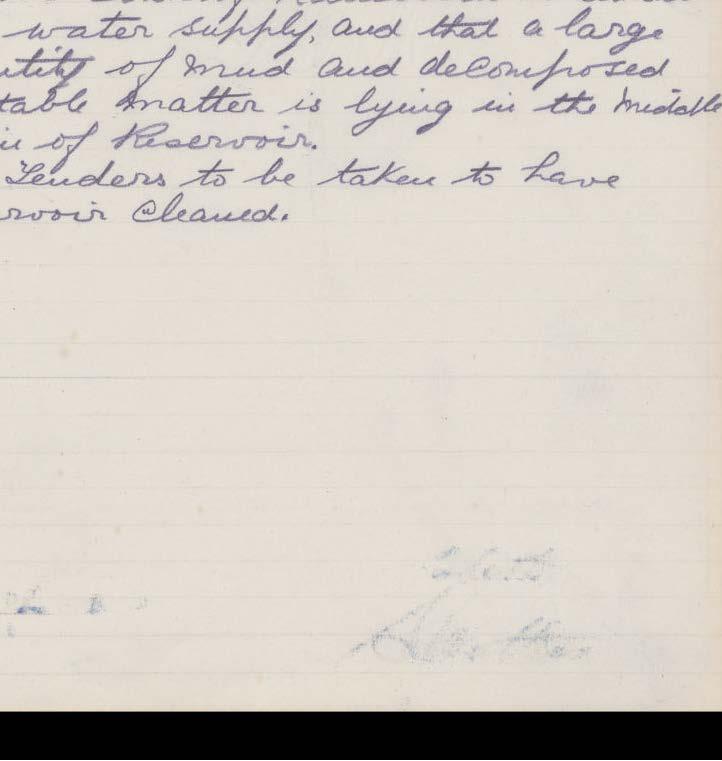 water supply, and that a large
utity of mud and decomposed
table matter is lying in the middle
of Reservoir.
Tenders to be taken to have
rvoir Cleaned.